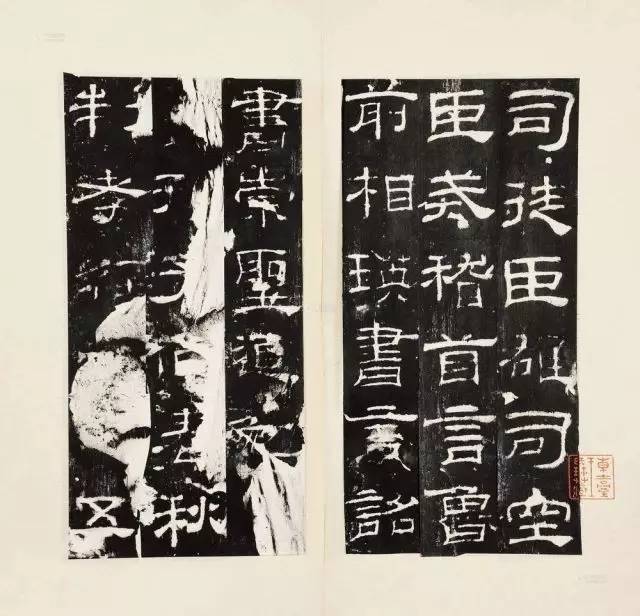 司徒臣雄司空
臣戒稽首言魯
前相瑛書言詔
書崇聖道勉
孔子作春秋
制孝經五